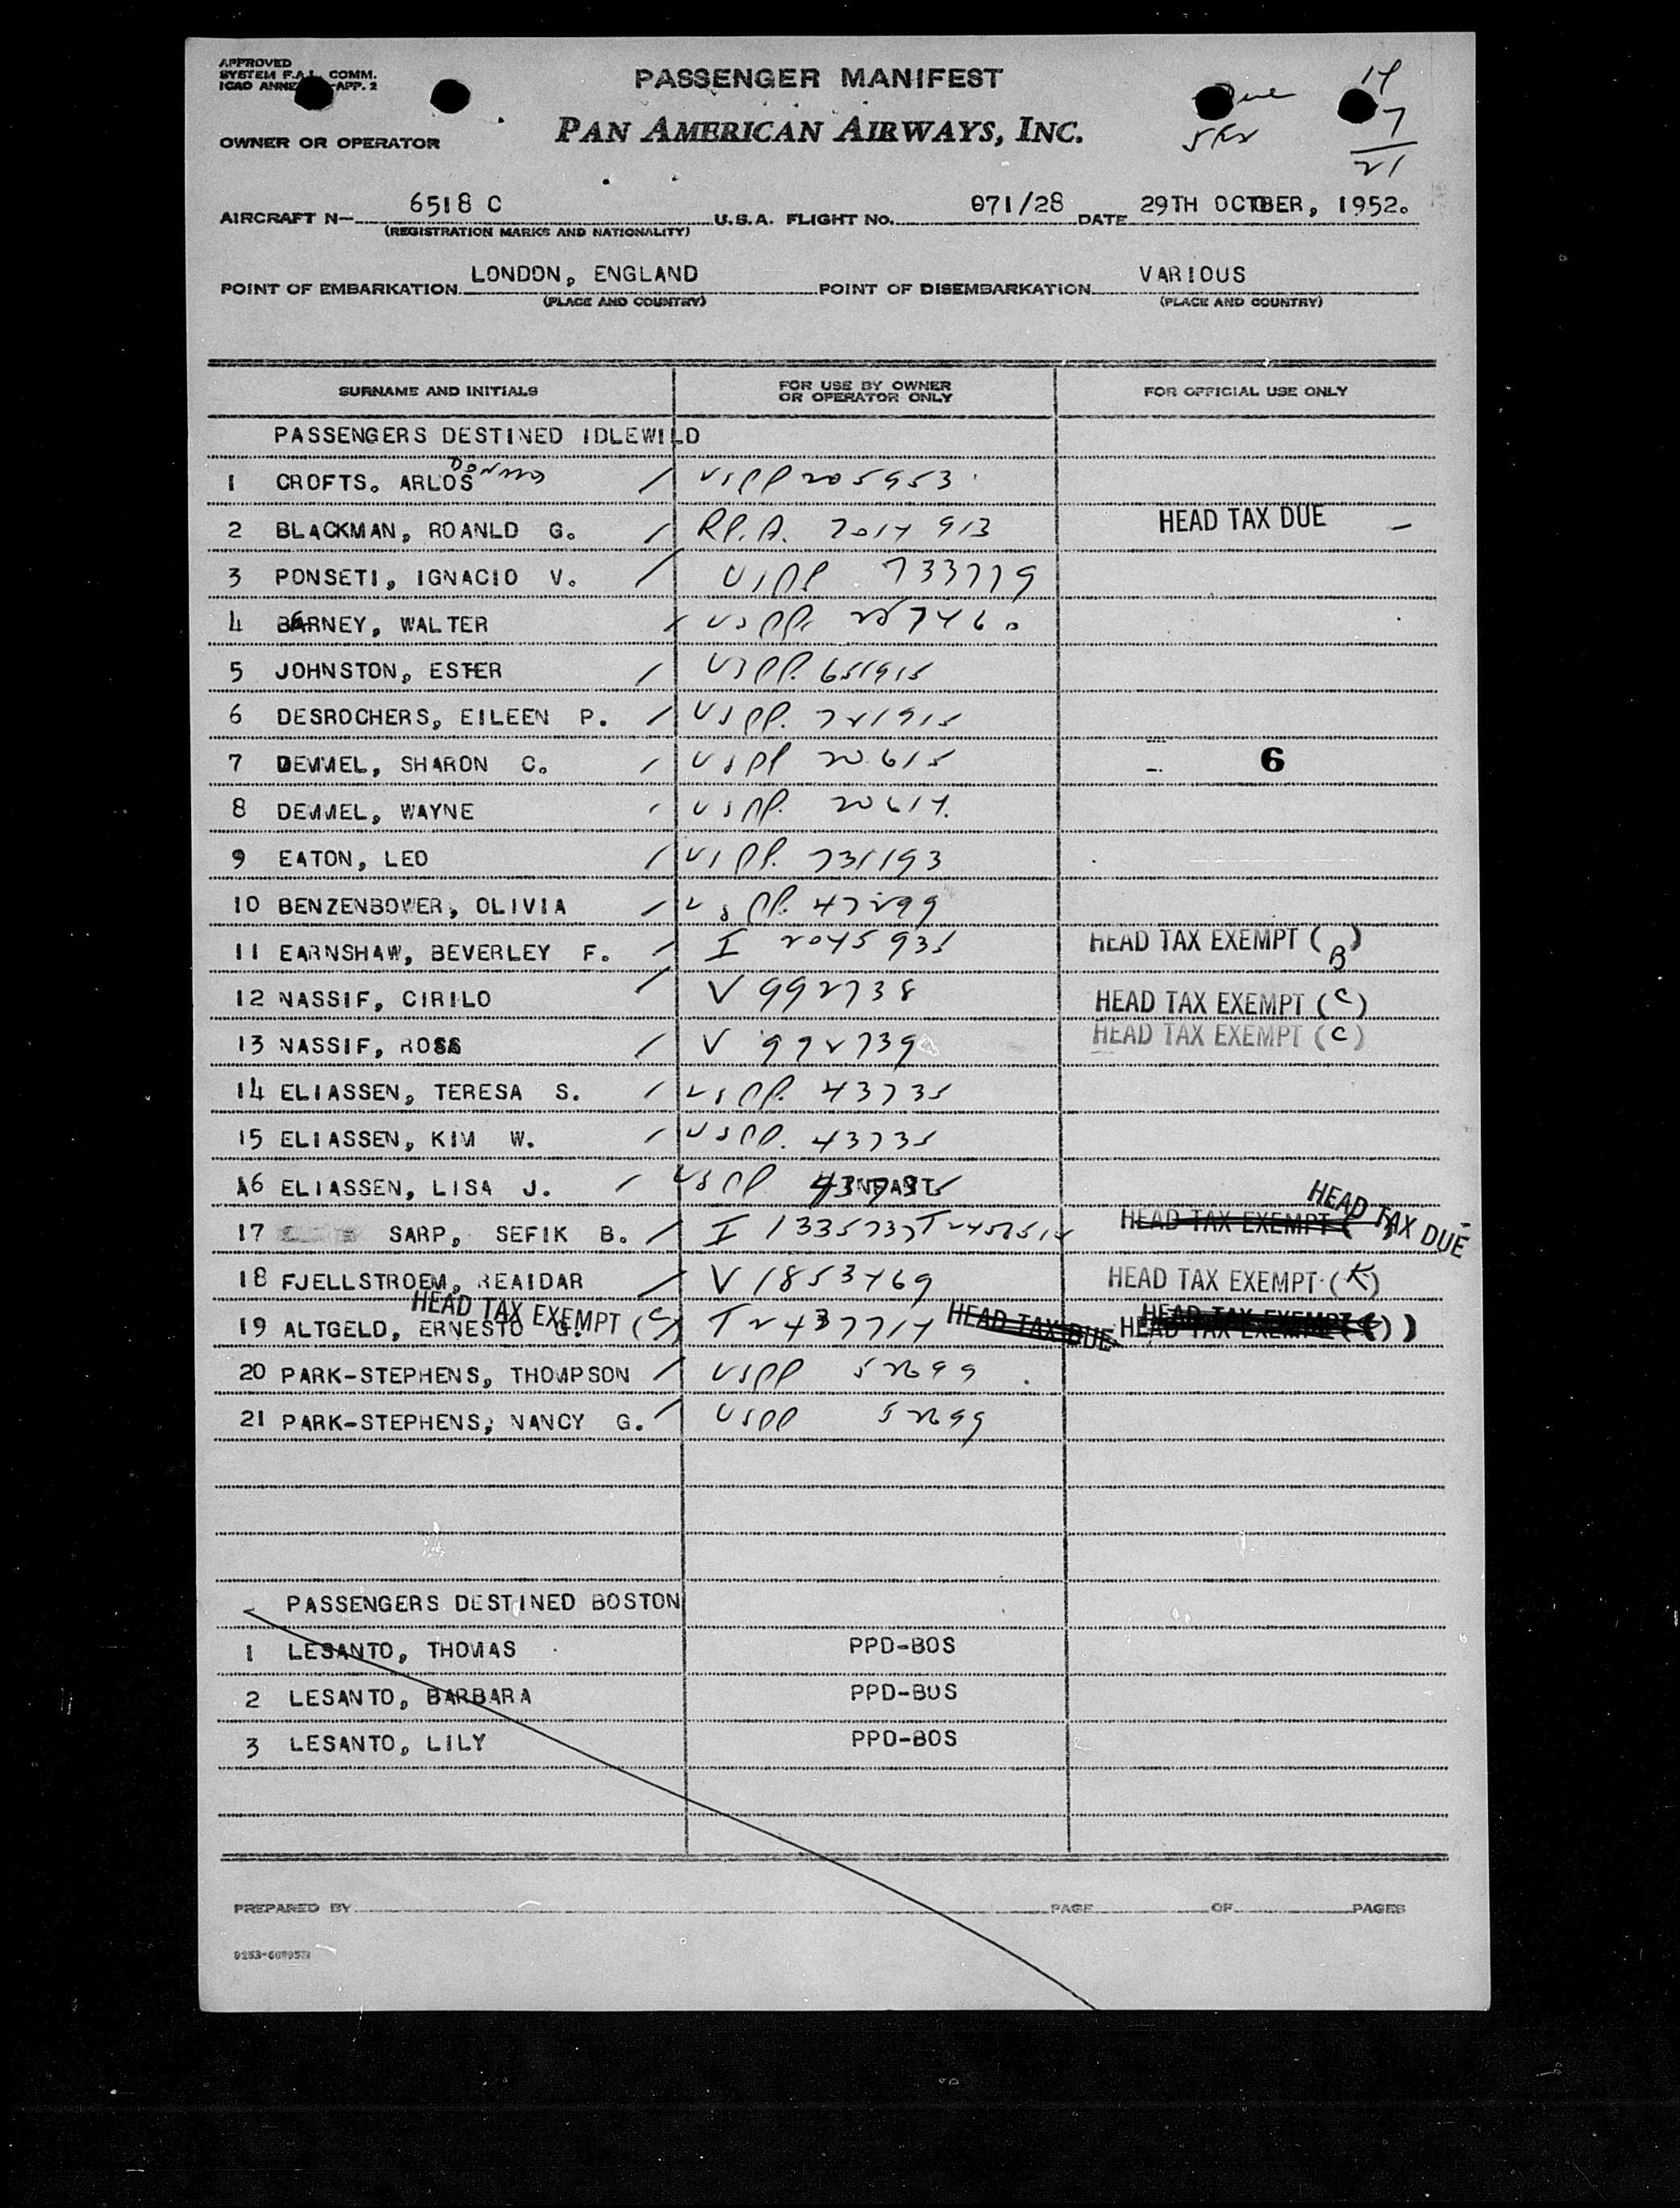 APPROVED
SYSTEM F.A.L. COMM.
ICAO ANNE APP. 2
PASSENGER MANIFEST
OWNER OR OPERATOR
PAN AMERICAN AIRWAYS, INC.
14
7
21
AIRCRAFT N— 6518 C U.S.A. FLIGHT NO. 071/28 DATE 29TH OCTOBER, 1952.
(REGISTRATION MARKS AND NATIONALITY)
POINT OF EMBARKATION LONDON, ENGLAND POINT OF DISEMBARKATION VARIOUS
(PLACE AND COUNTRY) (PLACE AND COUNTRY)
SURNAME AND INITIALS FOR USE BY OWNER OR OPERATOR ONLY FOR OFFICIAL USE ONLY
PASSENGERS DESTINED IDLEWILD
1 CROFTS. ARLOS USPP 205953
2 BLACKMAN, ROANLD G. / R.P.A. 2014913 HEAD TAX DUE –
3 PONSETI, IGNACIO V. / USPP 733779
4 BARNEY, WALTER / USPP.
5 JOHNSTON, ESTER / USPP. 651915
6 DESROCHERS, EILEEN P. / USPP. 721915
7 DEMMEL, SHARON C. / USPP 20615 6
8 DEMMEL, WAYNE / USPP. 20614.
9 EATON, LEO / USPP. 731193
10 BENZENBOWER, OLIVIA / USPP. 47299
11 EARNSHAW, BEVERLEY F. / I 2045935 HEAD TAX EXEMPT (B)
12 NASSIF, CIRILO / V 992738 HEAD TAX EXEMPT (C)
13 NASSIF, ROSA / V 992739 HEAD TAX EXEMPT (C)
14 ELIASSEN, TERESA S. / USPP. 43735
15 ELIASSEN, KIM W. / USPP. 43735
16 ELIASSEN, LISA J. / USPP 43735 INFANT
17 SARP, SEFIK B. / I 1335737 HEAD TAX EXEMPT ( HEAD TAX DUE
18 FJELLSTROEM, REAIDAR / V 1853469 HEAD TAX EXEMPT (K)
19 ALTGELD, ERNESTO G. HEAD TAX EXEMPT (C) / T 2437714 HEAD TAX DUE HEAD TAX EXEMPT
20 PARK-STEPHENS, THOMPSON / USPP 52699
21 PARK-STEPHENS, NANCY G. / USPP 52699
PASSENGERS DESTINED BOSTON
1 LESANTO, THOMAS PPD-BOS
2 LESANTO, BARBARA PPD-BOS
3 LESANTO, LILY PPD-BOS
PREPARED BY PAGE OF PAGES